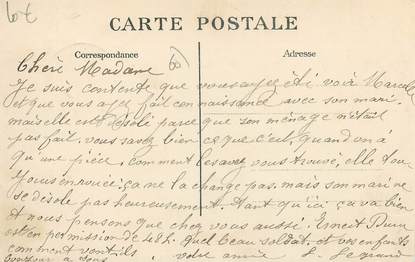 60€
60
CARTE POSTALE
Correspondance
Adresse
Chère Madame
Je suis contente que vous ayez été voir Marcelle
et que vous ayez fait connaissance avec son mari.
mais elle est désolé parce que son ménage n'était
pas fait. vous savez bien ce que c'est, quand on a
qu'une pièce. comment l'avez vous trouvé, elle tou-
jours enrouée; ça ne la change pas. mais son mari ne
se désole pas heureusement. tant qu'ici ça va bien
et nous pensons que chez vous aussi. Ernest
est en permission de 48h. quel beau soldat. et vos enfants
comment vont ils. votre amie L. Legrand
bonjour à tous